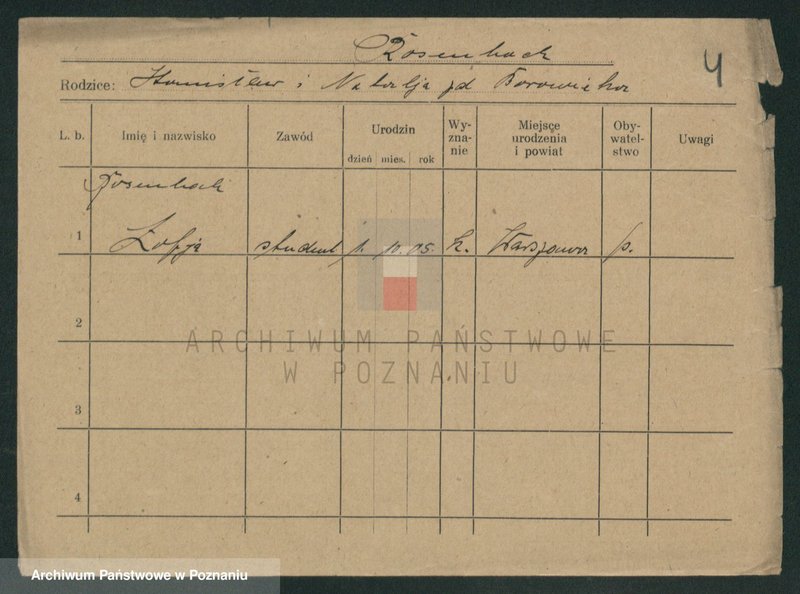 Rosenbach
4
Rodzice: Stanisław i Natalja
L. b. Imię i nazwisko Zawód Urodzin dzień mies. rok Wy-zna-nie Miejsce urodzenia i powiat Oby-watel-stwo Uwagi
Rosenbach
1 Zofja student 1. 10. 05. k. Warszawa p.
2
ARCHIWUM PAŃSTWOWE
W POZNANIU
3
4
Archiwum Państwowe w Poznaniu